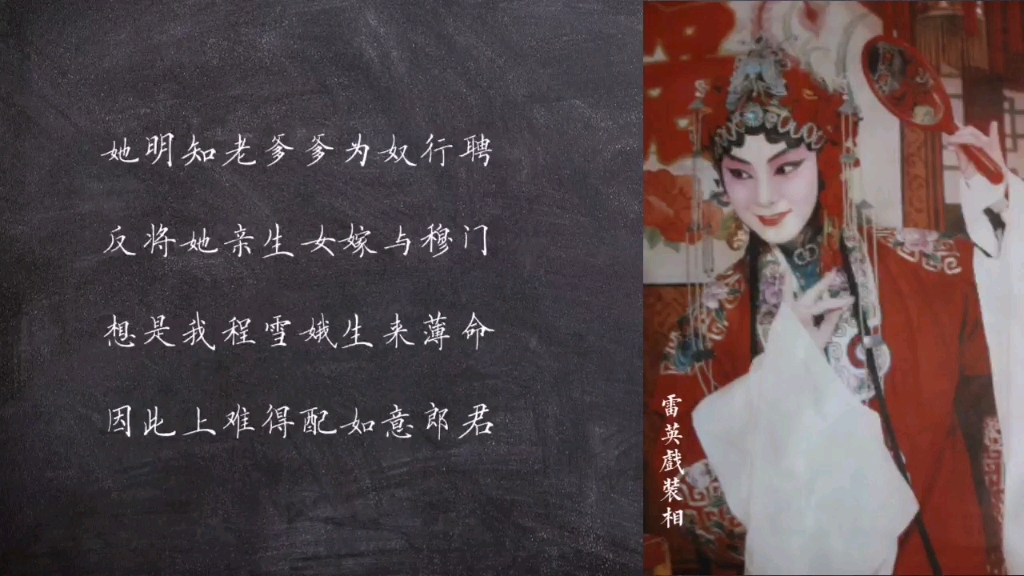 她明知老爹爹为奴行聘
反将她亲生女嫁与穆门
想是我程雪娥生来薄命
因此上难得配如意郎君
雷英戲裝相